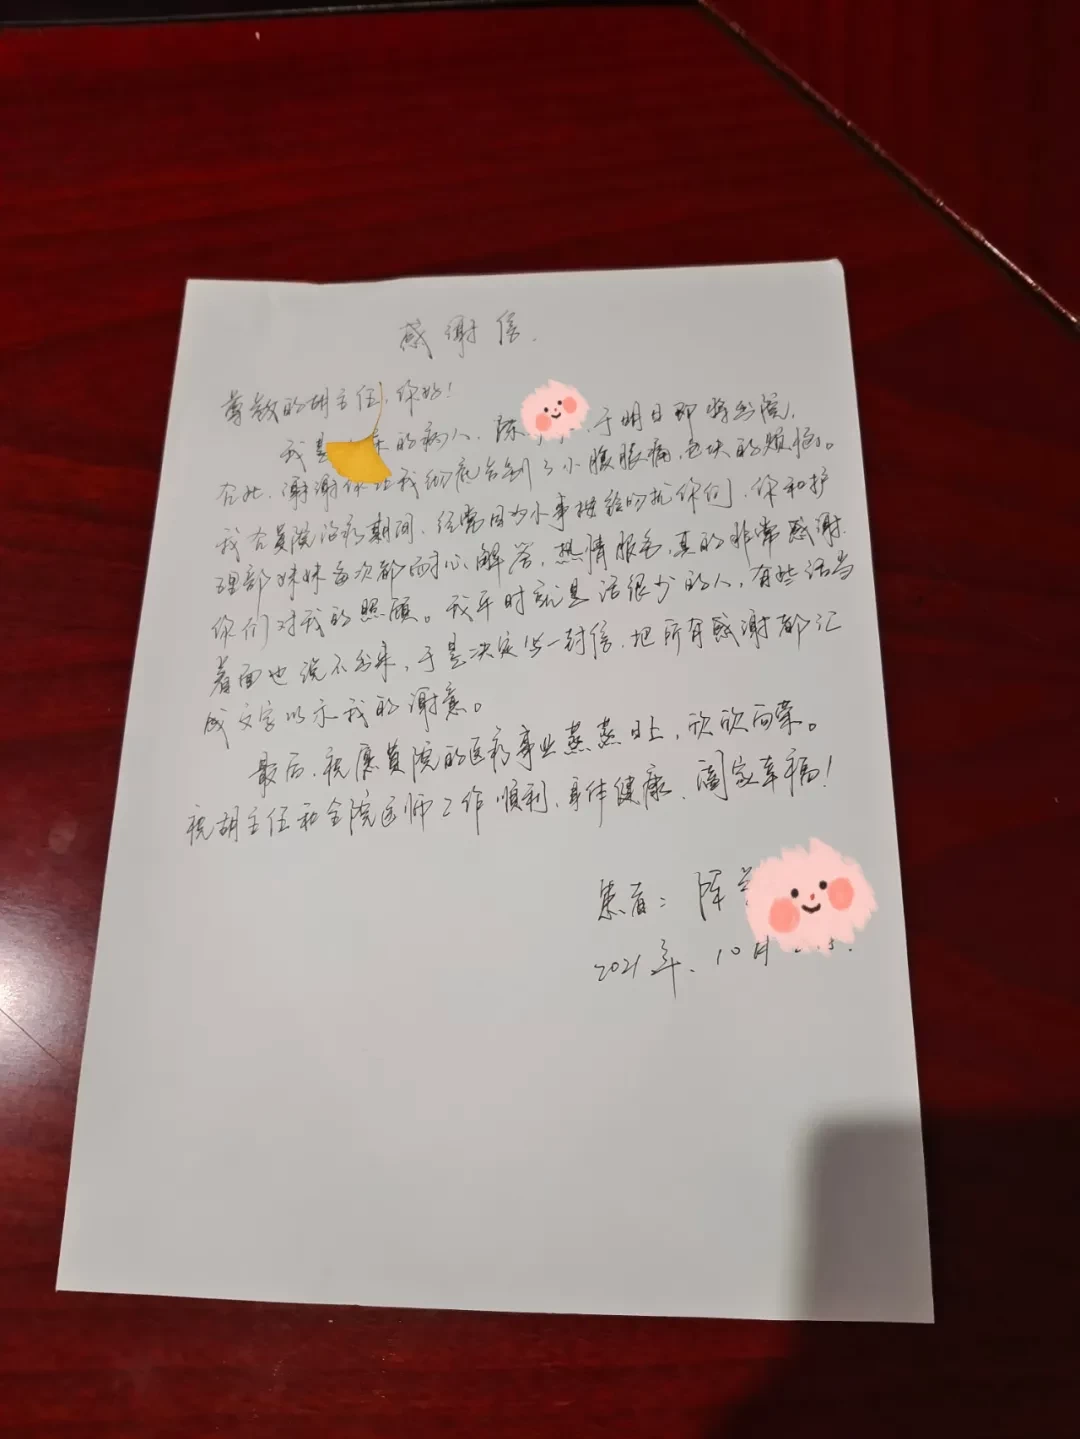 感谢信.
尊敬的胡主任,你好!
我是 床的病人,陈 ,于明日即将出院,
在此,谢谢你让我彻底告别了小腹胀痛,包块的烦恼。
我在贵院治疗期间,经常因为小事按铃叨扰你们,你和护
理部妹妹每次都耐心解答,热情服务,真的非常感谢
你们对我的照顾。我平时就是话很少的人,有些话当
着面也说不出来,于是决定写一封信,把所有感谢都汇
成文字以示我的谢意。
最后,祝愿贵院的医疗事业蒸蒸日上,欣欣向荣。
祝胡主任和全院医师工作顺利,身体健康、阖家幸福!
患者: 陈
2021年、10月